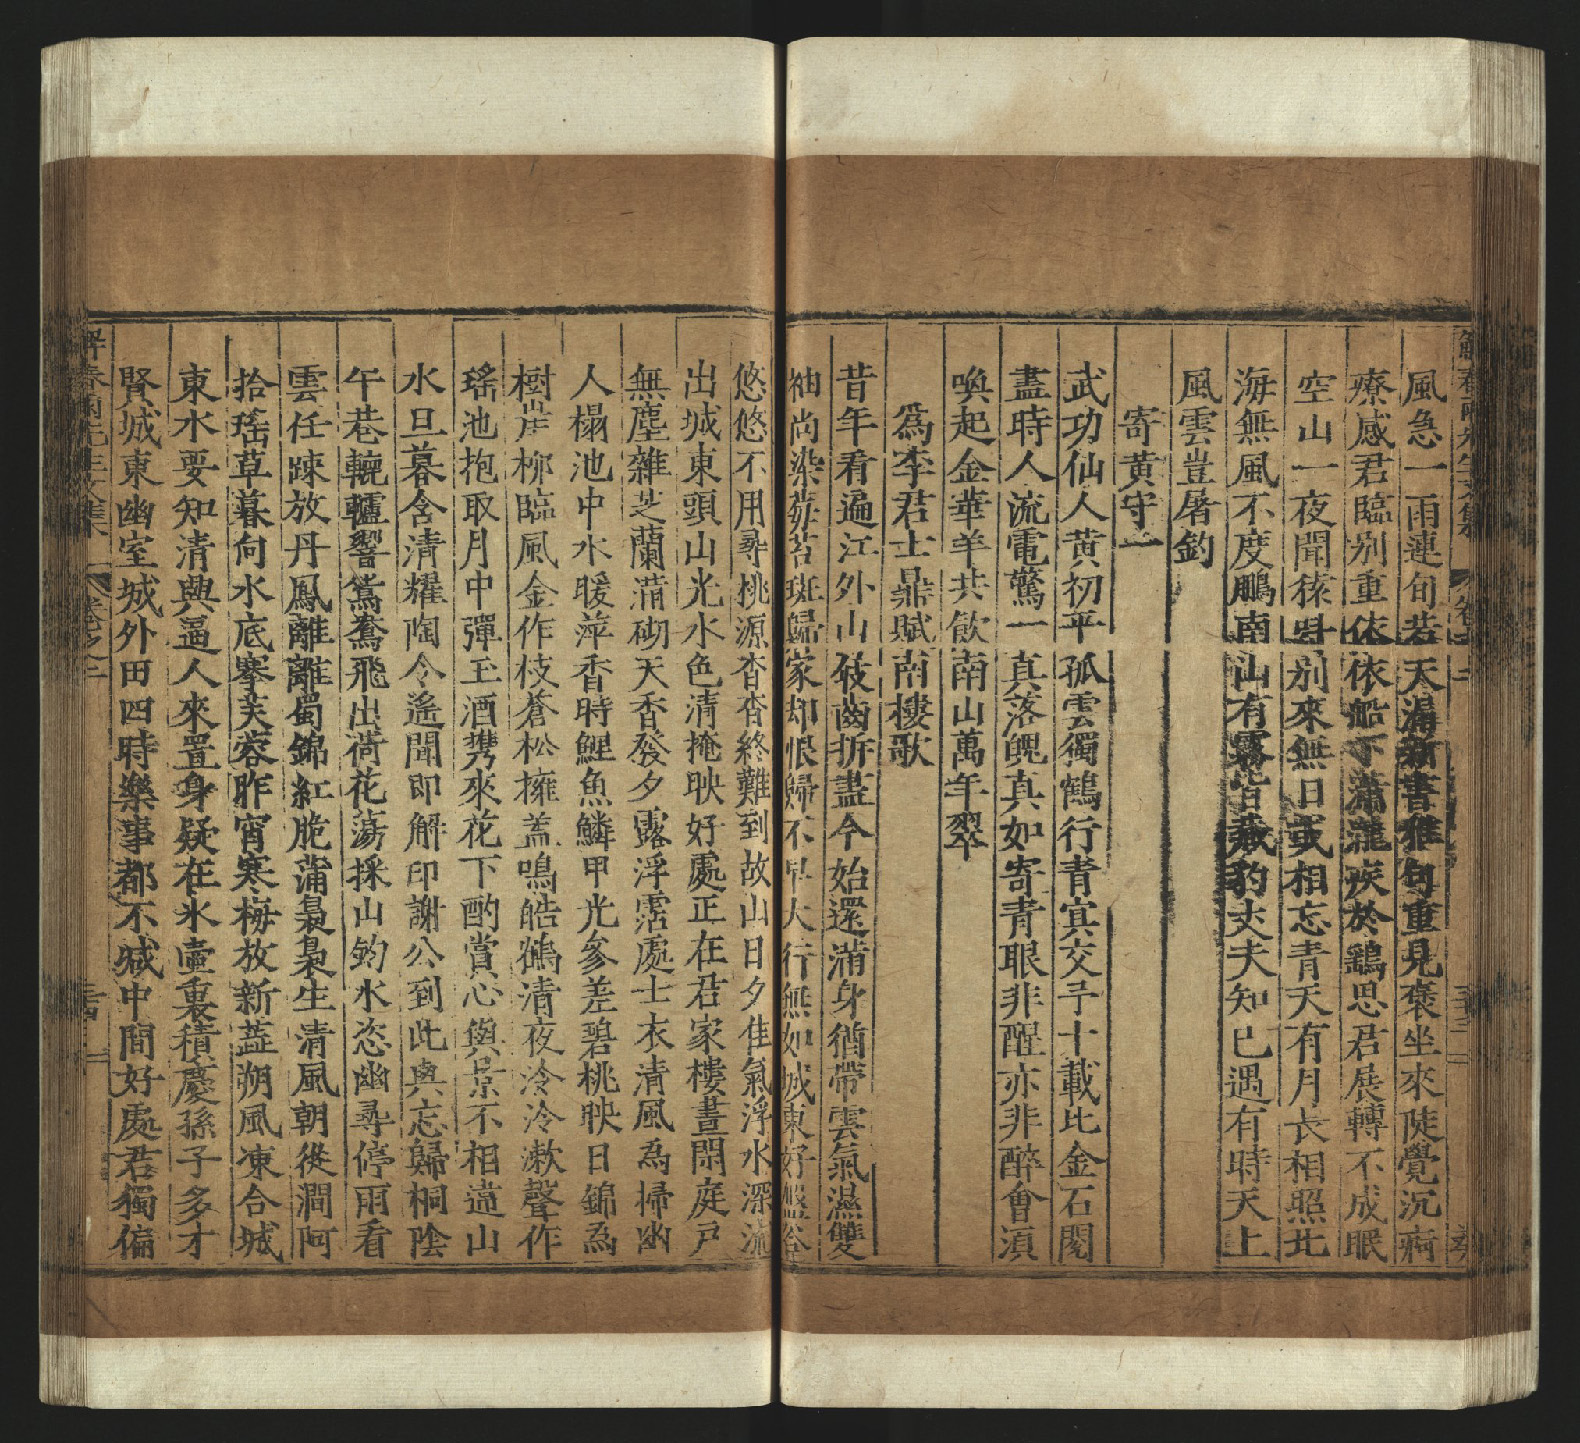 風急一雨連旬若天漏新書雅句重見褒坐來陡覺沉痾
療感君臨别重依依船下瀟瀧疾於鷁思君展轉不成眠
空山一夜聞猿别來無日或相忘青天有月長相照北
海無風不度鵬南山有霧皆藏豹丈夫知已遇有時天上
風雲豈屠釣
寄黄守一
武功仙人黄初平孤雲獨鶴行青冥交予十載比金石閱
盡時人流電驚一真落魄真如寄青眼非醒亦非醉會湏
喚起金華羊共飲南山萬年翠
為李君士鼎賦南樓歌
昔年看遍江外山屐齒折盡今始還滿身猶帶雲氣濕雙
袖尚染莓苔斑歸家却恨歸不早大行無如城東好盤谷
悠悠不用尋桃源杳杳終難到故山日夕佳氣浮水深流
出城東頭山光水色清掩映好處正在君家樓晝閒庭戶
無塵雜芝蘭滿砌天香發夕露浮霑處士衣清風為掃幽
人榻池中水暖萍香時鯉魚鱗甲光參差碧桃映日錦為
樹岸柳臨風金作枝蒼松擁蓋鳴皓鶴清夜泠泠漱聲作
瑤池抱取月中彈玉酒携來花下酌賞心與景不相違山
水旦暮含清耀陶令遙聞即解印謝公到此輿忘歸桐陰
午巷轆轤響鴛鴦飛出荷花蕩採山釣水恣幽尋停雨看
雲任踈放丹鳳離離蜀錦紅脆蒲裊裊生清風朝從澗阿
拾瑤草暮向水底搴芙蓉昨宵寒梅放新蕋朔風凍合城
東水要知清興逼人來置身疑在氷壺裏積慶孫子多才
賢城東幽室城外田四時樂事都不減中間好處君獨偏